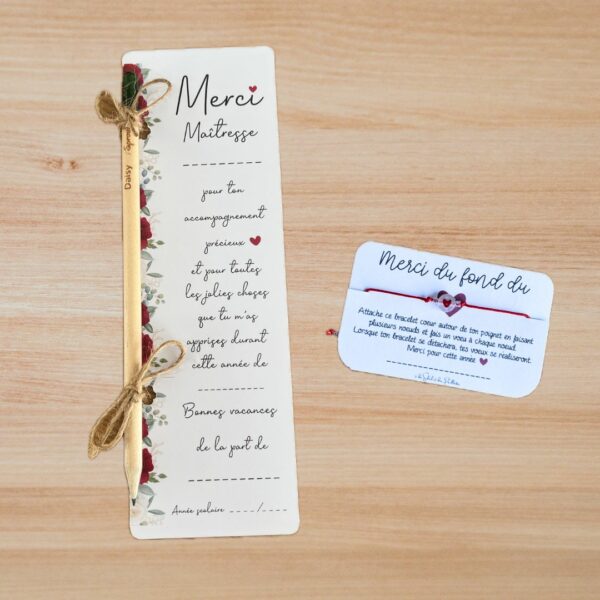 Merci
Maîtresse
pour ton
accompagnement
précieux
et pour toutes
les jolies choses
que tu m'as
apprises durant
cette année de
Bonnes vacances
de la part de
Année scolaire ____/____
Daisy
Merci du fond du
Attache ce bracelet coeur autour de ton poignet en faisant
plusieurs noeuds et fais un voeu à chaque noeud.
Lorsque ton bracelet se détachera, tes voeux se réaliseront.
Merci pour cette année